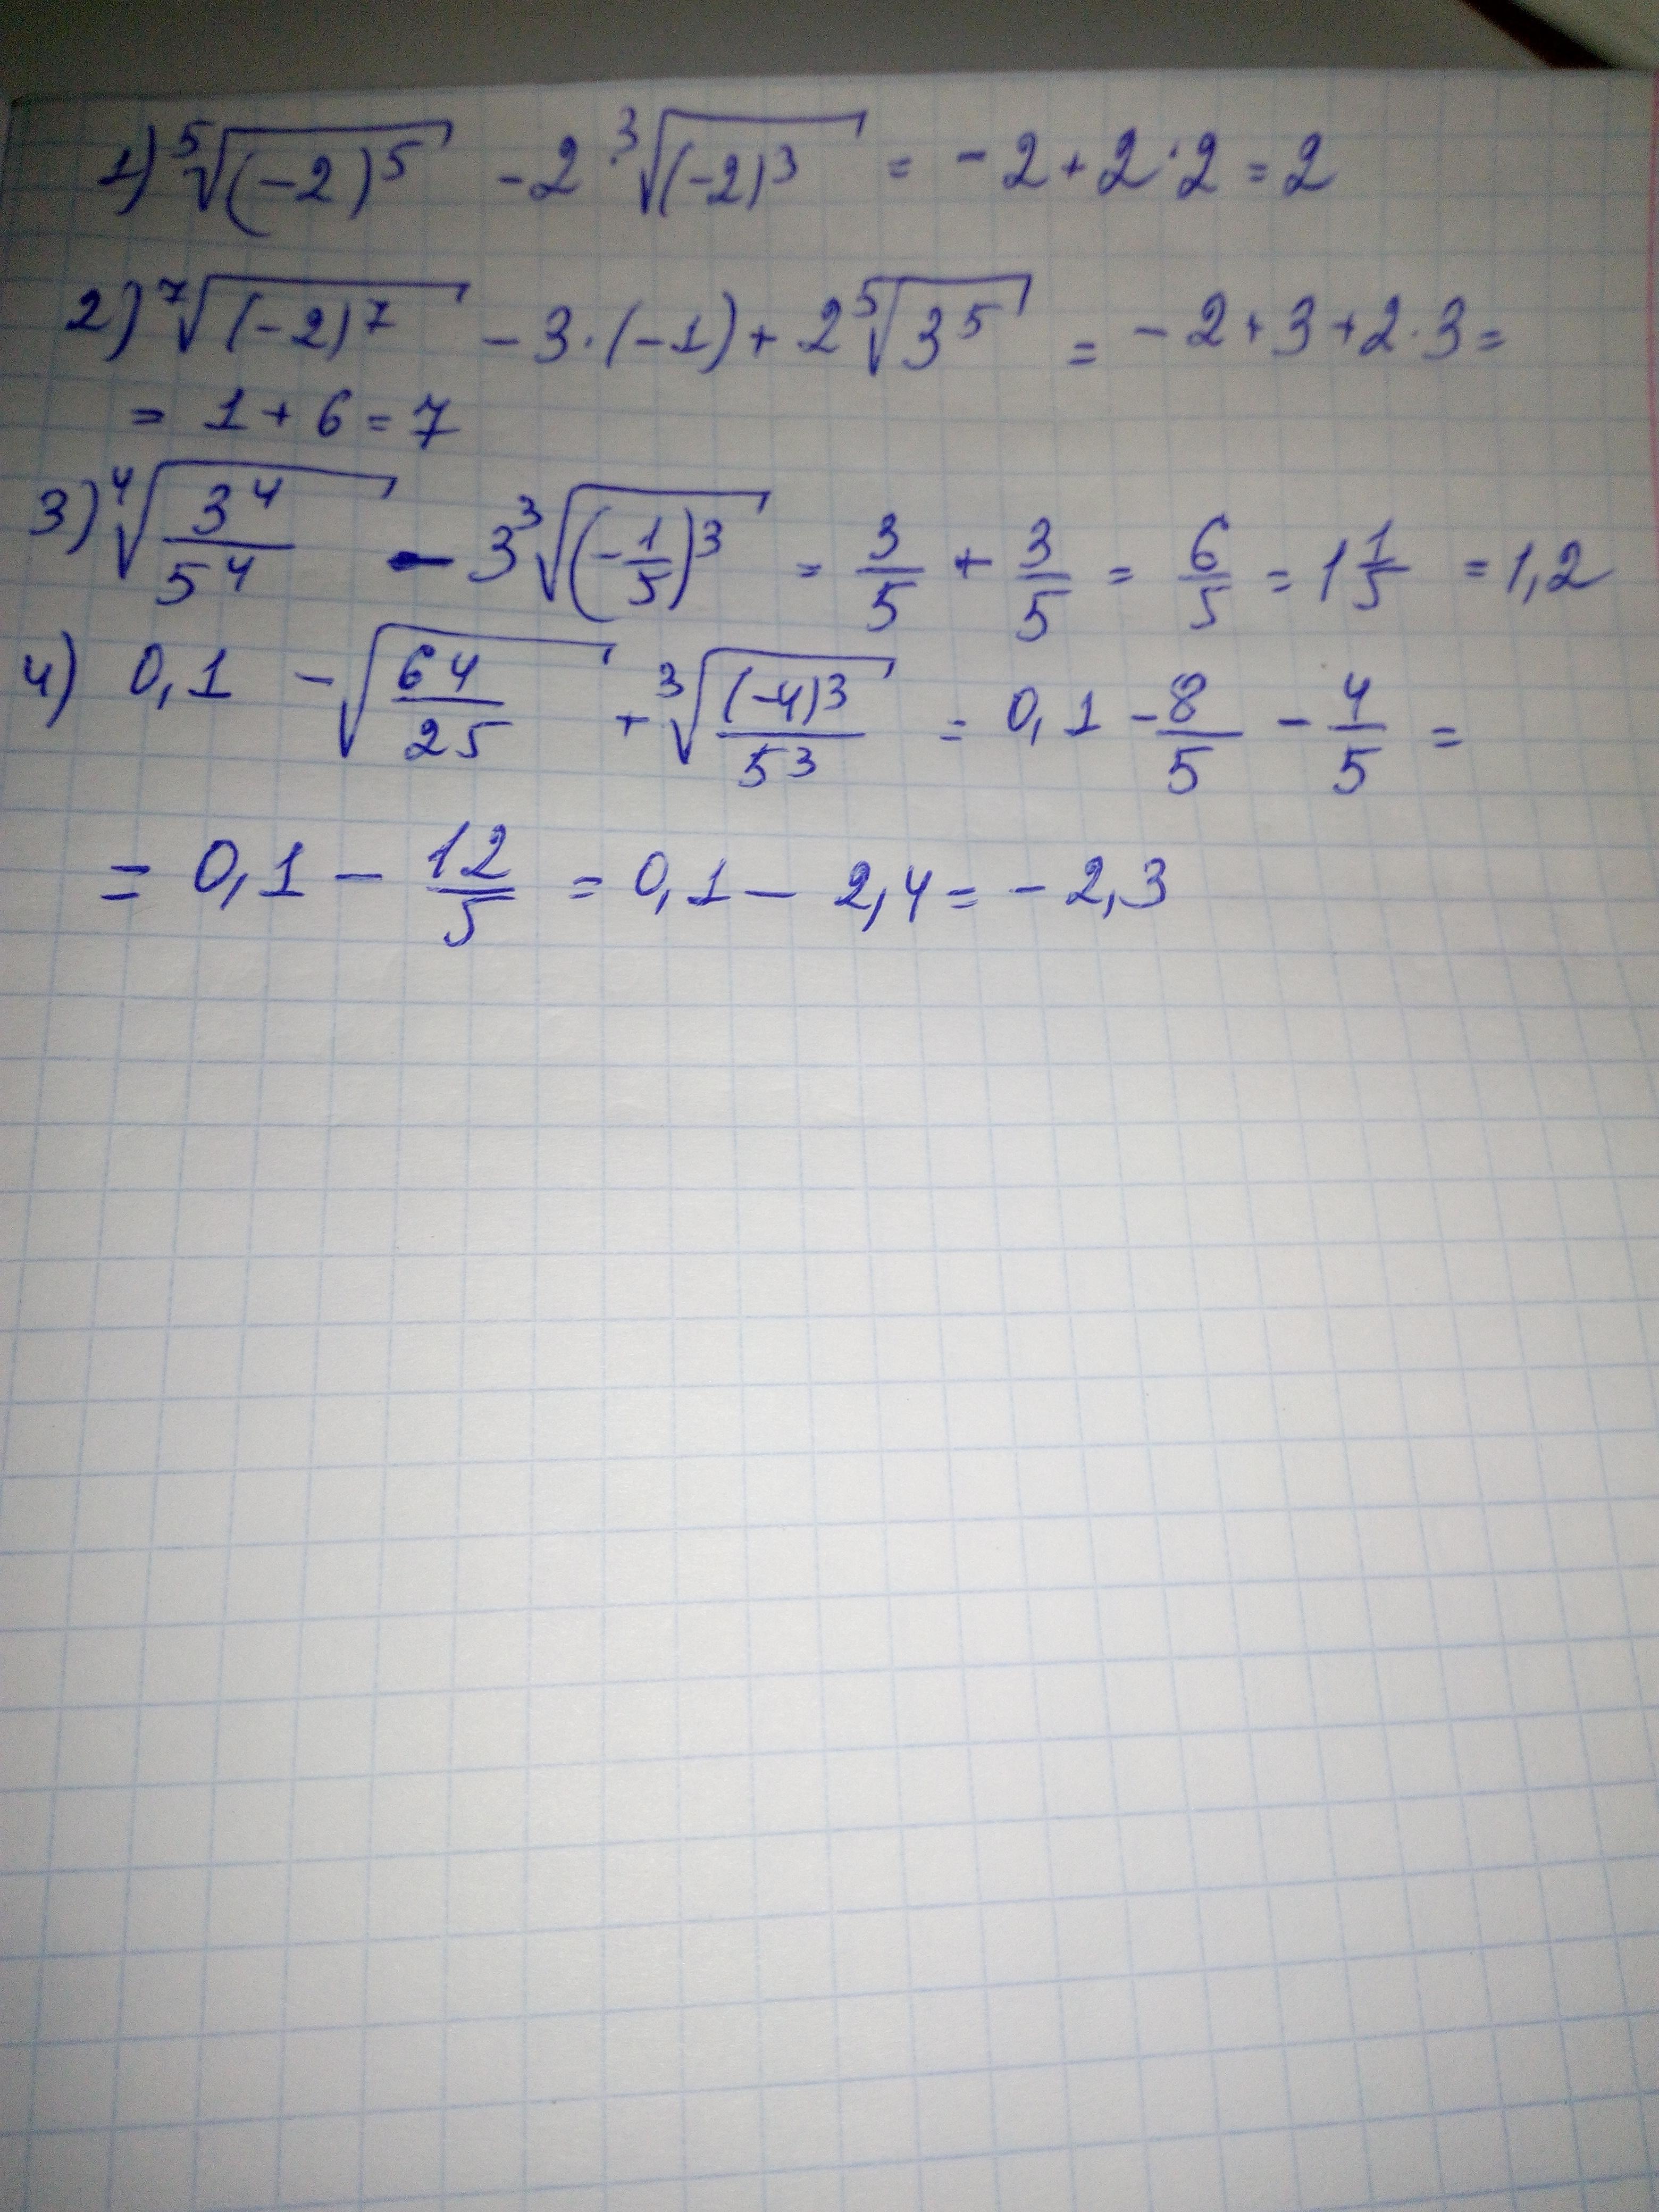 1) ⁵√(-2)⁵ - 2 ³√(-2)³ = -2 + 2·2 = 2
2) ⁷√(-2)⁷ - 3·(-1) + 2 ⁵√3⁵ = -2 + 3 + 2·3 =
= 1 + 6 = 7
3) ⁴√(3⁴/5⁴) - 3 ³√(-1/5)³ = 3/5 + 3/5 = 6/5 = 1 1/5 = 1,2
4) 0,1 - √(64/25) + ³√((-4)³/5³) = 0,1 - 8/5 - 4/5 =
= 0,1 - 12/5 = 0,1 - 2,4 = -2,3